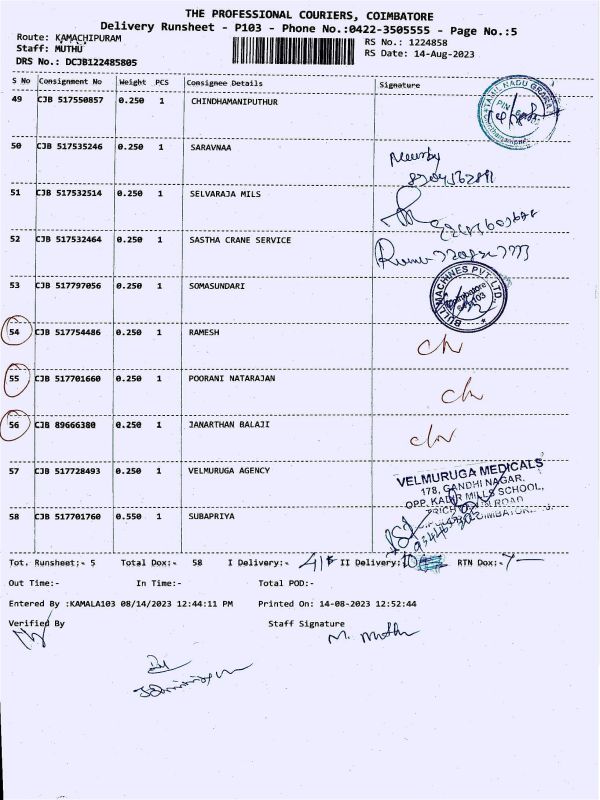 THE PROFESSIONAL COURIERS, COIMBATORE
Delivery Runsheet - P103 - Phone No.:0422-3505555 - Page No.:5
Route: KAMACHIPURAM
RS No.: 1224858
Staff: MUTHU
RS Date: 14-Aug-2023
DRS No.: DCJB122485805
S No Consignment No Weight PCS Consignee Details Signature
49 CJB 517550857 0.250 1 CHINDHAMANIPUTHUR
50 CJB 517535246 0.250 1 SARAVNAA
51 CJB 517532514 0.250 1 SELVARAJA MILS
52 CJB 517532464 0.250 1 SASTHA CRANE SERVICE
53 CJB 517797056 0.250 1 SOMASUNDARI
BULL MACHINES PVT. LTD.
Coimbatore
54 CJB 517754486 0.250 1 RAMESH
55 CJB 517701660 0.250 1 POORANI NATARAJAN
56 CJB 89666380 0.250 1 JANARTHAN BALAJI
57 CJB 517728493 0.250 1 VELMURUGA AGENCY
VELMURUGA MEDICALS
178, GANDHI NAGAR,
OPP. KADIR MILLS SCHOOL,
58 CJB 517701760 0.550 1 SUBAPRIYA
Tot. Runsheet:- 5 Total Dox:- 58 I Delivery:- 41 II Delivery: 10 RTN Dox:- 7
Out Time:- In Time:- Total POD:-
Entered By :KAMALA103 08/14/2023 12:44:11 PM Printed On: 14-08-2023 12:52:44
Verified By Staff Signature
M. Muthu